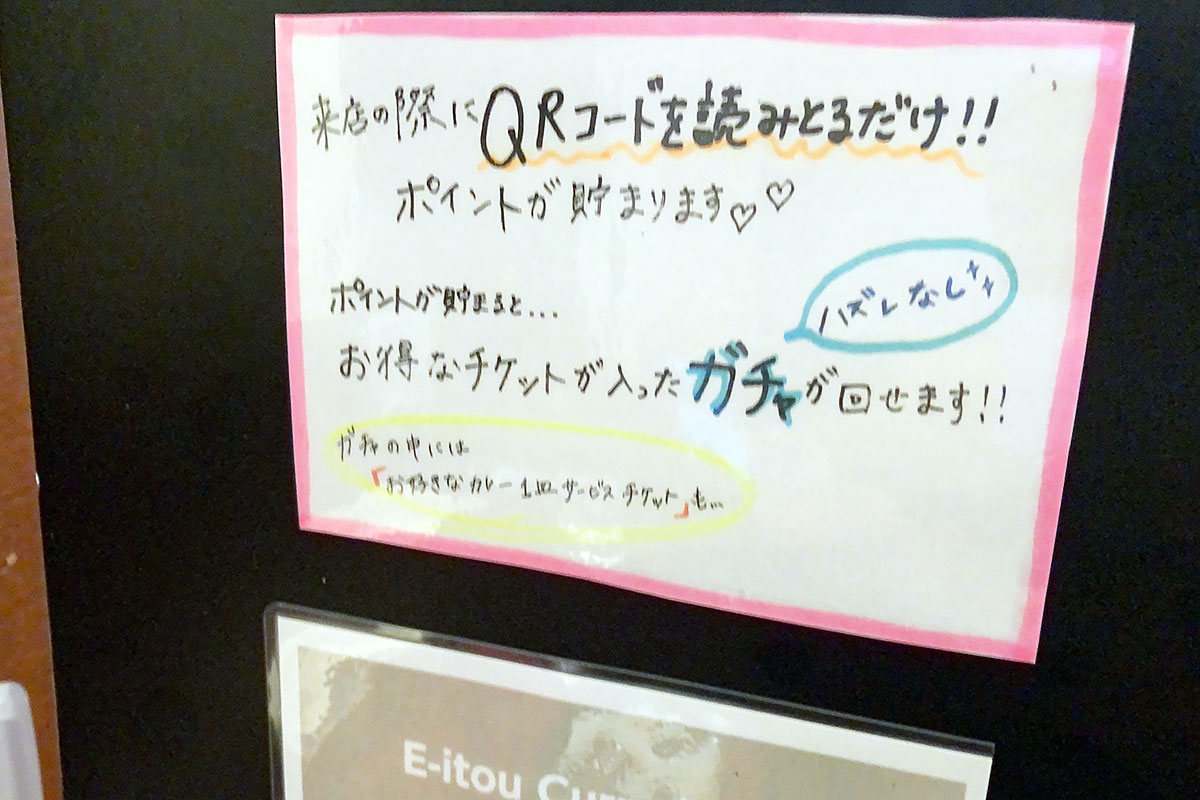 来店の際にQRコードを読みとるだけ!!
ポイントが貯まります♡♡
ポイントが貯まると...
ハズレなし
お得なチケットが入ったガチャが回せます!!
ガチャの中には
「お好きなカレー1皿サービスチケット」も...
E-itou